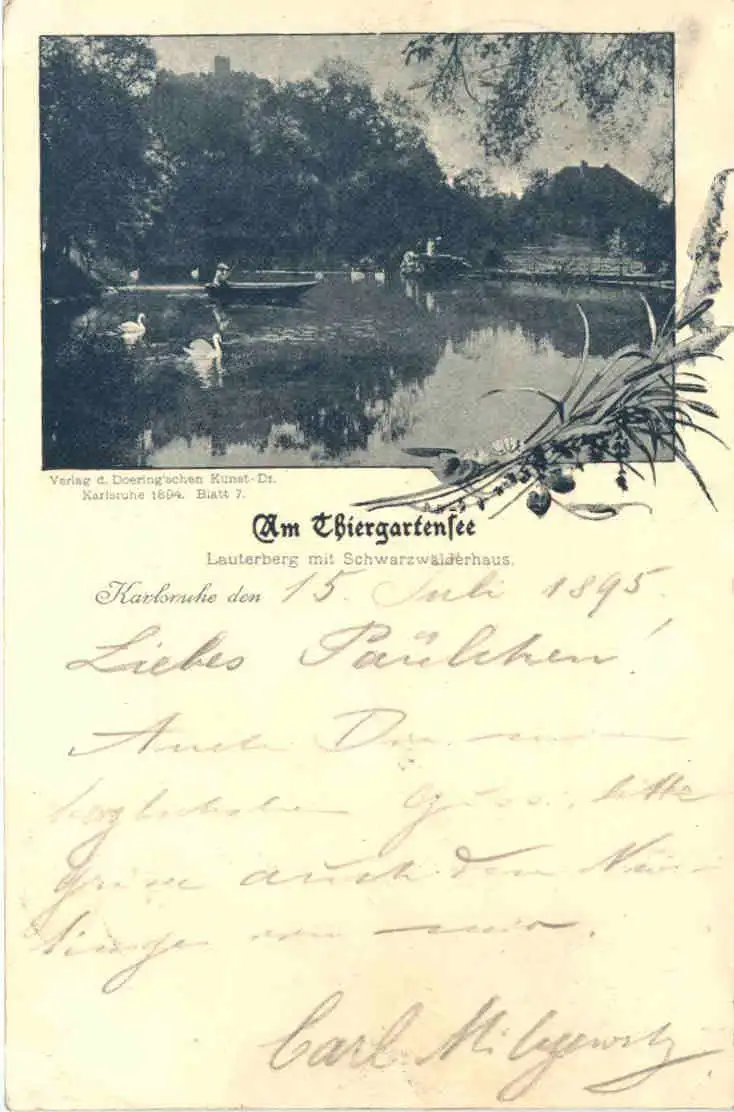 Verlag d. Doering'schen Kunst-Dr.
Karlsruhe 1894. Blatt 7.
Am Thiergartensee
Lauterberg mit Schwarzwälderhaus.
Karlsruhe den 15. Juli 1895.
Liebes Päulchen!
Auch Dir
bitte
auch den
von mir.
Carl